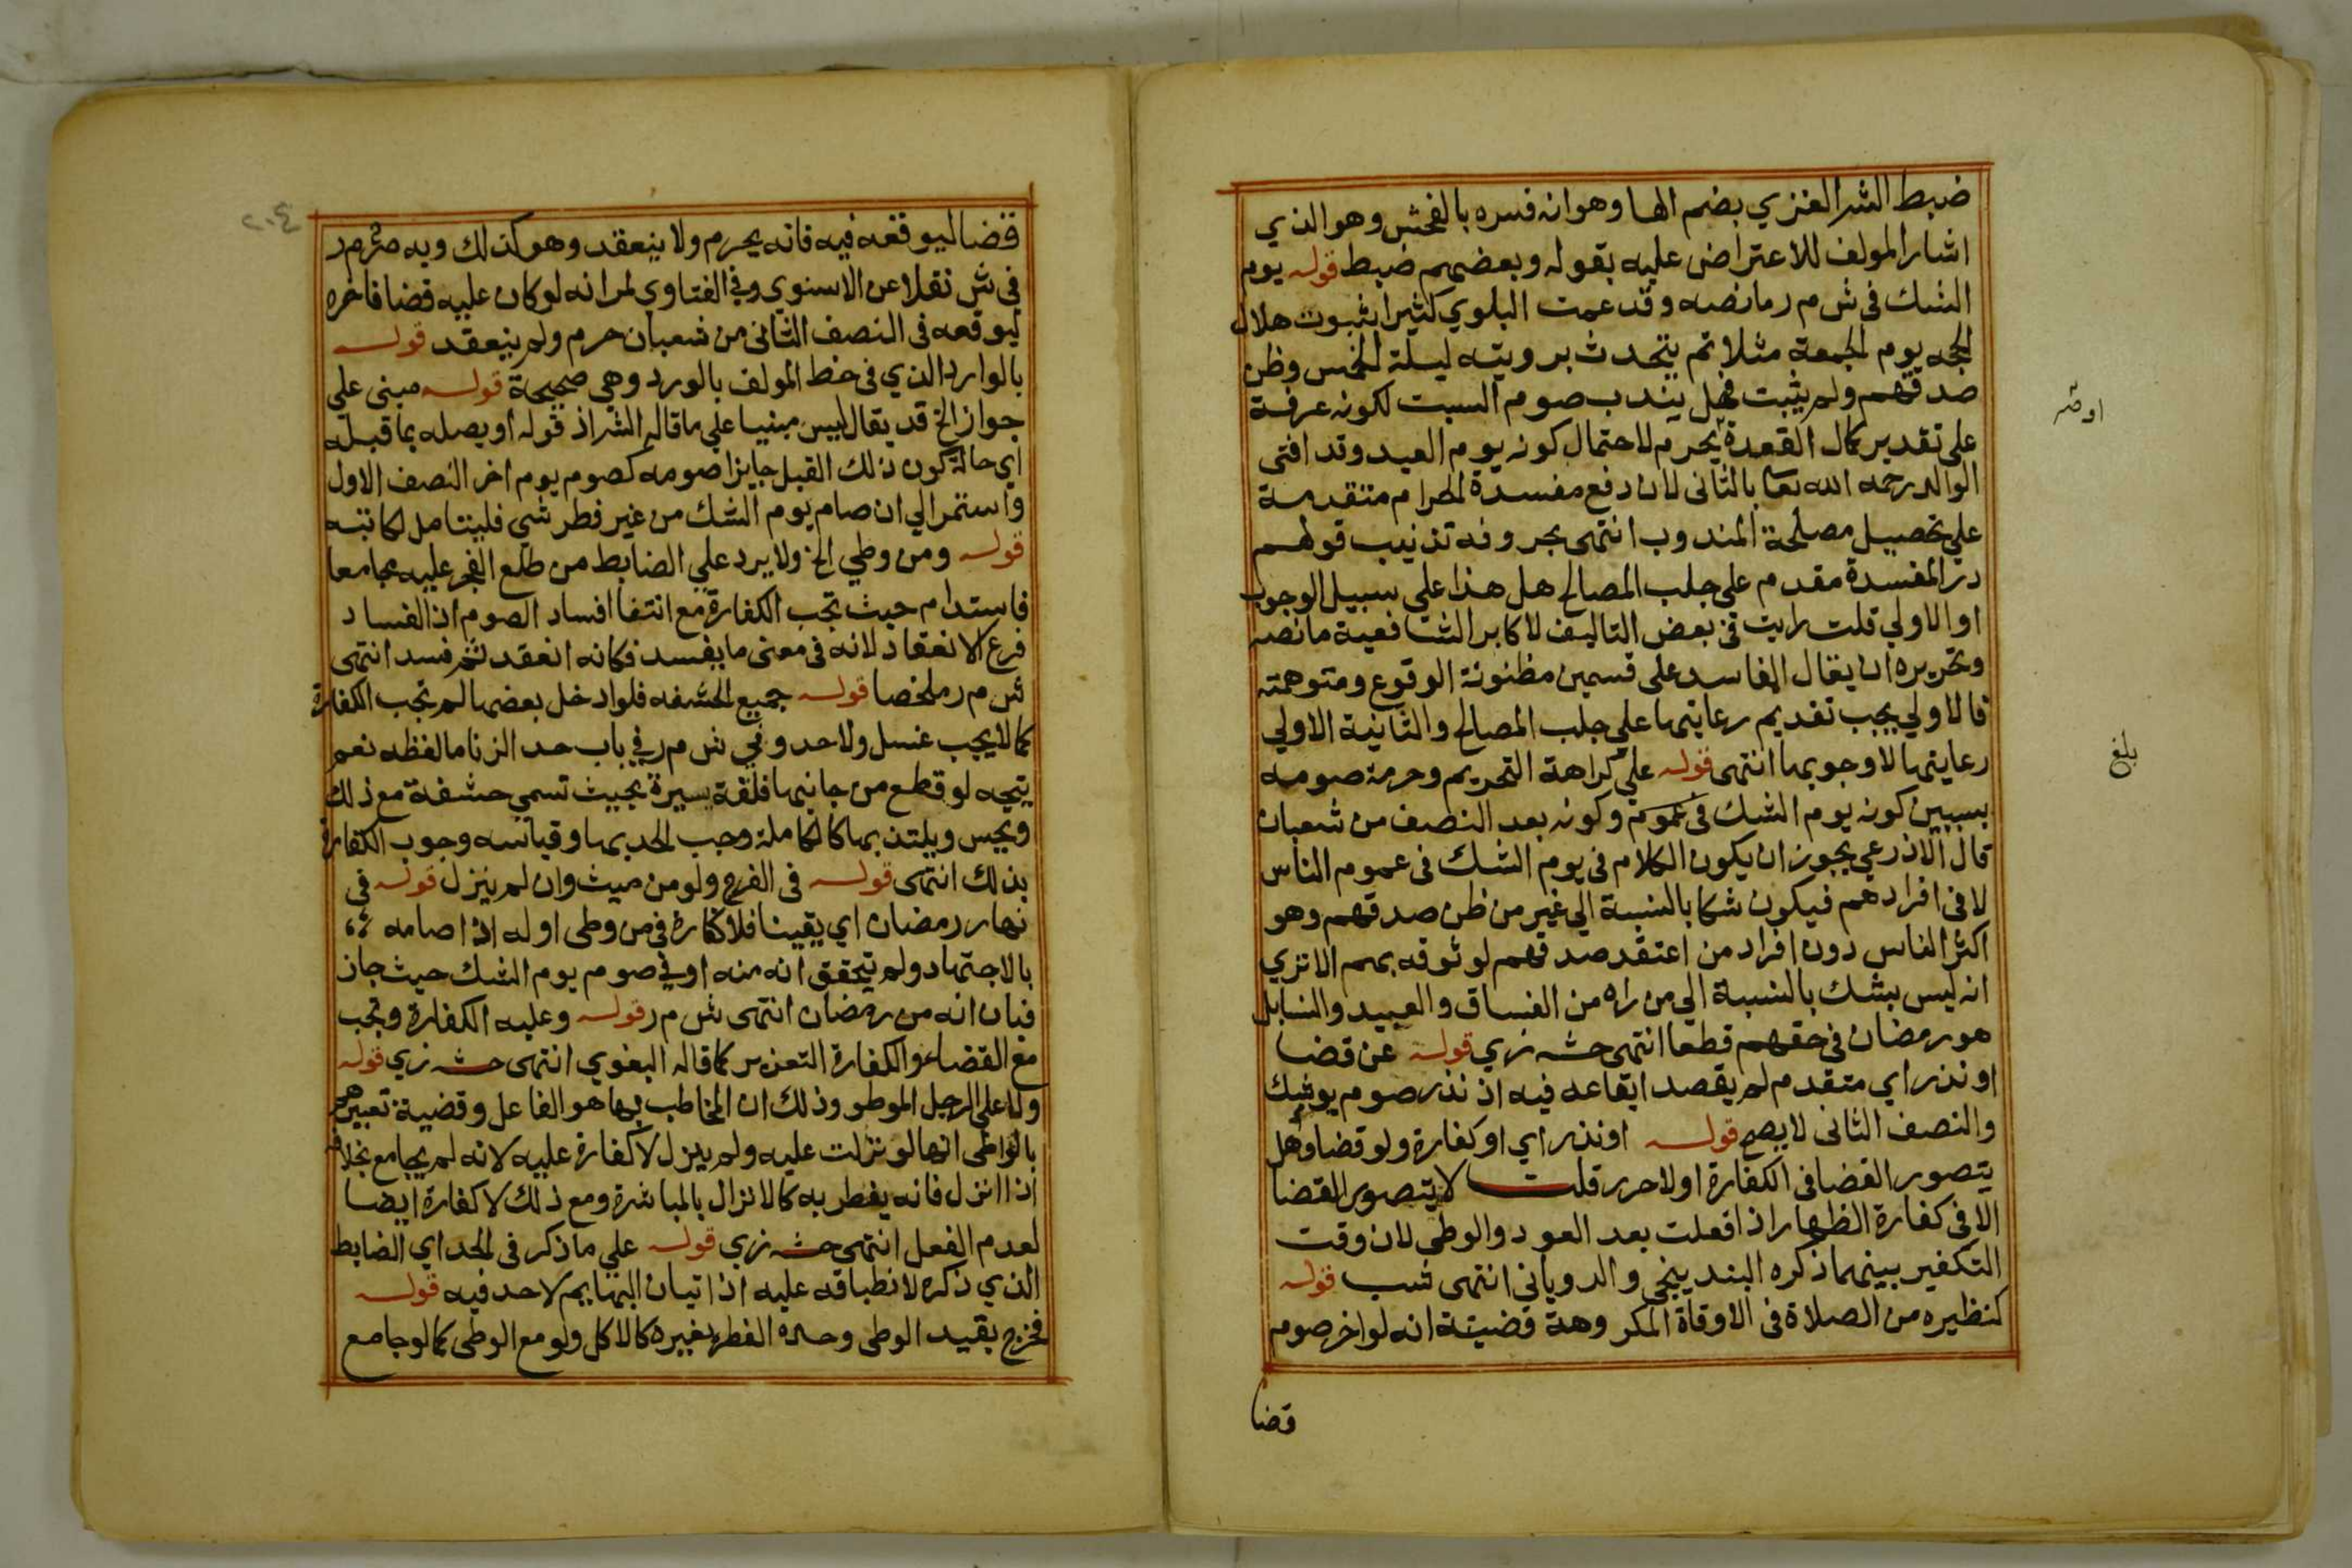 ضبط الشر الغزي بضم الها وهو انه فسره بالفحش وهو الذي
اشار المولف للاعتراض عليه بقوله وبعضهم ضبط قوله يوم
الشك فى ش م ر ما نصه وقد عمت البلوي كثيرا بثبوت هلال
الحجه يوم الجمعة مثلا ثم يتحدث برويته ليلة الخمس وظن
صدقهم ولم يثبت فهل يندب صوم السبت لكونه عرفة
على تقدير كمال القعدة يحرم لاحتمال كونه يوم العيد وقد افتى
الوالد رحمه الله تعا بالثانى لان دفع مفسدة الحرام متقدمة
على تحصيل مصلحة المندوب انتهى بحروفه تذنيب قولهم
در المفسدة مقدم على جلب المصالح هل هذا على سبيل الوجوب
او الاولي قلت رايت فى بعض التاليف لاكابر الشافعية ما نصه
وتحريره ان يقال المفاسد على قسمين مظنونة الوقوع ومتوهمته
فالاولي يجب تقديم رعايتها على جلب المصالح والثانية الاولي
رعايتها لا وجوبها انتهى قوله علي كراهة التحريم وحرمة صومه
بسببين كونه يوم الشك فى عموم وكونه بعد النصف من شعبان
قال الاذرعي يجوز ان يكون الكلام فى يوم الشك فى عموم الناس
لا فى افرادهم فيكون شكا بالنسبة الي غير من ظن صدقهم وهو
اكثر الناس دون افراد من اعتقد صدقهم لوثوقه بهم الا تري
انه ليس بشك بالنسبة الي من راه من الفساق والعبيد والنسا بل
هو رمضان فى حقهم قطعا انتهى حشه زي قوله عن قضا
او نذر اي متقدم لم يقصد ايقاعه فيه اذ نذر صوم يو شك
والنصف الثانى لا يصح قوله او نذر اي او كفارة ولو قضا وهل
يتصور القضا فى الكفارة او لا حرر قلت لا يتصور القضا
الا فى كفارة الظهار اذا فعلت بعد العود والوطى لان وقت
التكفير بينهما ذكره البندينجي والرويانى انتهى شب قوله
كنظيره من الصلاة فى الاوقاة المكروهة قضيتة انه لو اخر صوم
قضا
اوثر
بلغ
٢٠٤
قضا ليوقعه فيه فانه يحرم ولا ينعقد وهو كذلك وبه صرح م ر
فى ش نقلا عن الاسنوي وفي الفتاوي لمر انه لو كان عليه قضا فاخره
ليوقعه فى النصف الثانى من شعبان حرم ولم ينعقد قوله
بالوارد الذي فى خط المولف بالورد وهي صحيحة قوله مبنى على
جواز الخ قد يقال ليس مبنيا على ما قاله الشر اذ قوله او يصله بما قبله
اي حالة كون ذلك القبل جايزا صومه كصوم يوم اخر النصف الاول
واستمر الي ان صام يوم الشك من غير فطر شي فليتامل لكاتبه
قوله ومن وطي الخ ولا يرد علي الضابط من طلع الفجر عليه مجامعا
فاستدام حيث تجب الكفارة مع انتفا افساد الصوم اذ الفساد
فرع الانعقاد لانه فى معنى ما يفسد فكانه انعقد ثم فسد انتهى
ش م ر ملخصا قوله جميع الحشفه فلو ادخل بعضها لم تجب الكفارة
كما لا يجب غسل ولا حد وفي ش م ر في باب حد الزنا ما لفظه نعم
يتجه لو قطع من جانبها فلقة يسيرة بحيث تسمي حشفة مع ذلك
ويحس ويلتذ بها كالكاملة وجب الحد بها وقياسه وجوب الكفارة
بذلك انتهى قوله فى الفرج ولو من ميت وان لم ينزل قوله فى
نهار رمضان اي يقينا فلا كفارة فى من وطى اوله اذا صامه
بالاجتهاد ولم يتحقق انه منه او في صوم يوم الشك حيث جاز
فبان انه من رمضان انتهى ش م ر قوله وعليه الكفارة وتجب
مع القضاء والكفارة التعزير كما قاله البغوي انتهى حشه زي قوله
ولا على الرجل الموطو وذلك ان المخاطب بها هو الفاعل وقضية تعبيرهم
بالواطى انها لو نزلت عليه ولم ينزل لا كفارة عليه لانه لم يجامع بخلاف
اذا انزل فانه يفطر به كالانزال بالمباشرة ومع ذلك لا كفارة ايضا
لعدم الفعل انتهى حشه زي قوله علي ما ذكر فى الحد اي الضابط
الذي ذكره لانطباقه عليه اذ اتيان البهايم لا حد فيه قوله
فخرج بقيد الوطى وحده الفطر بغيره كالاكل ولو مع الوطى كما لو جامع